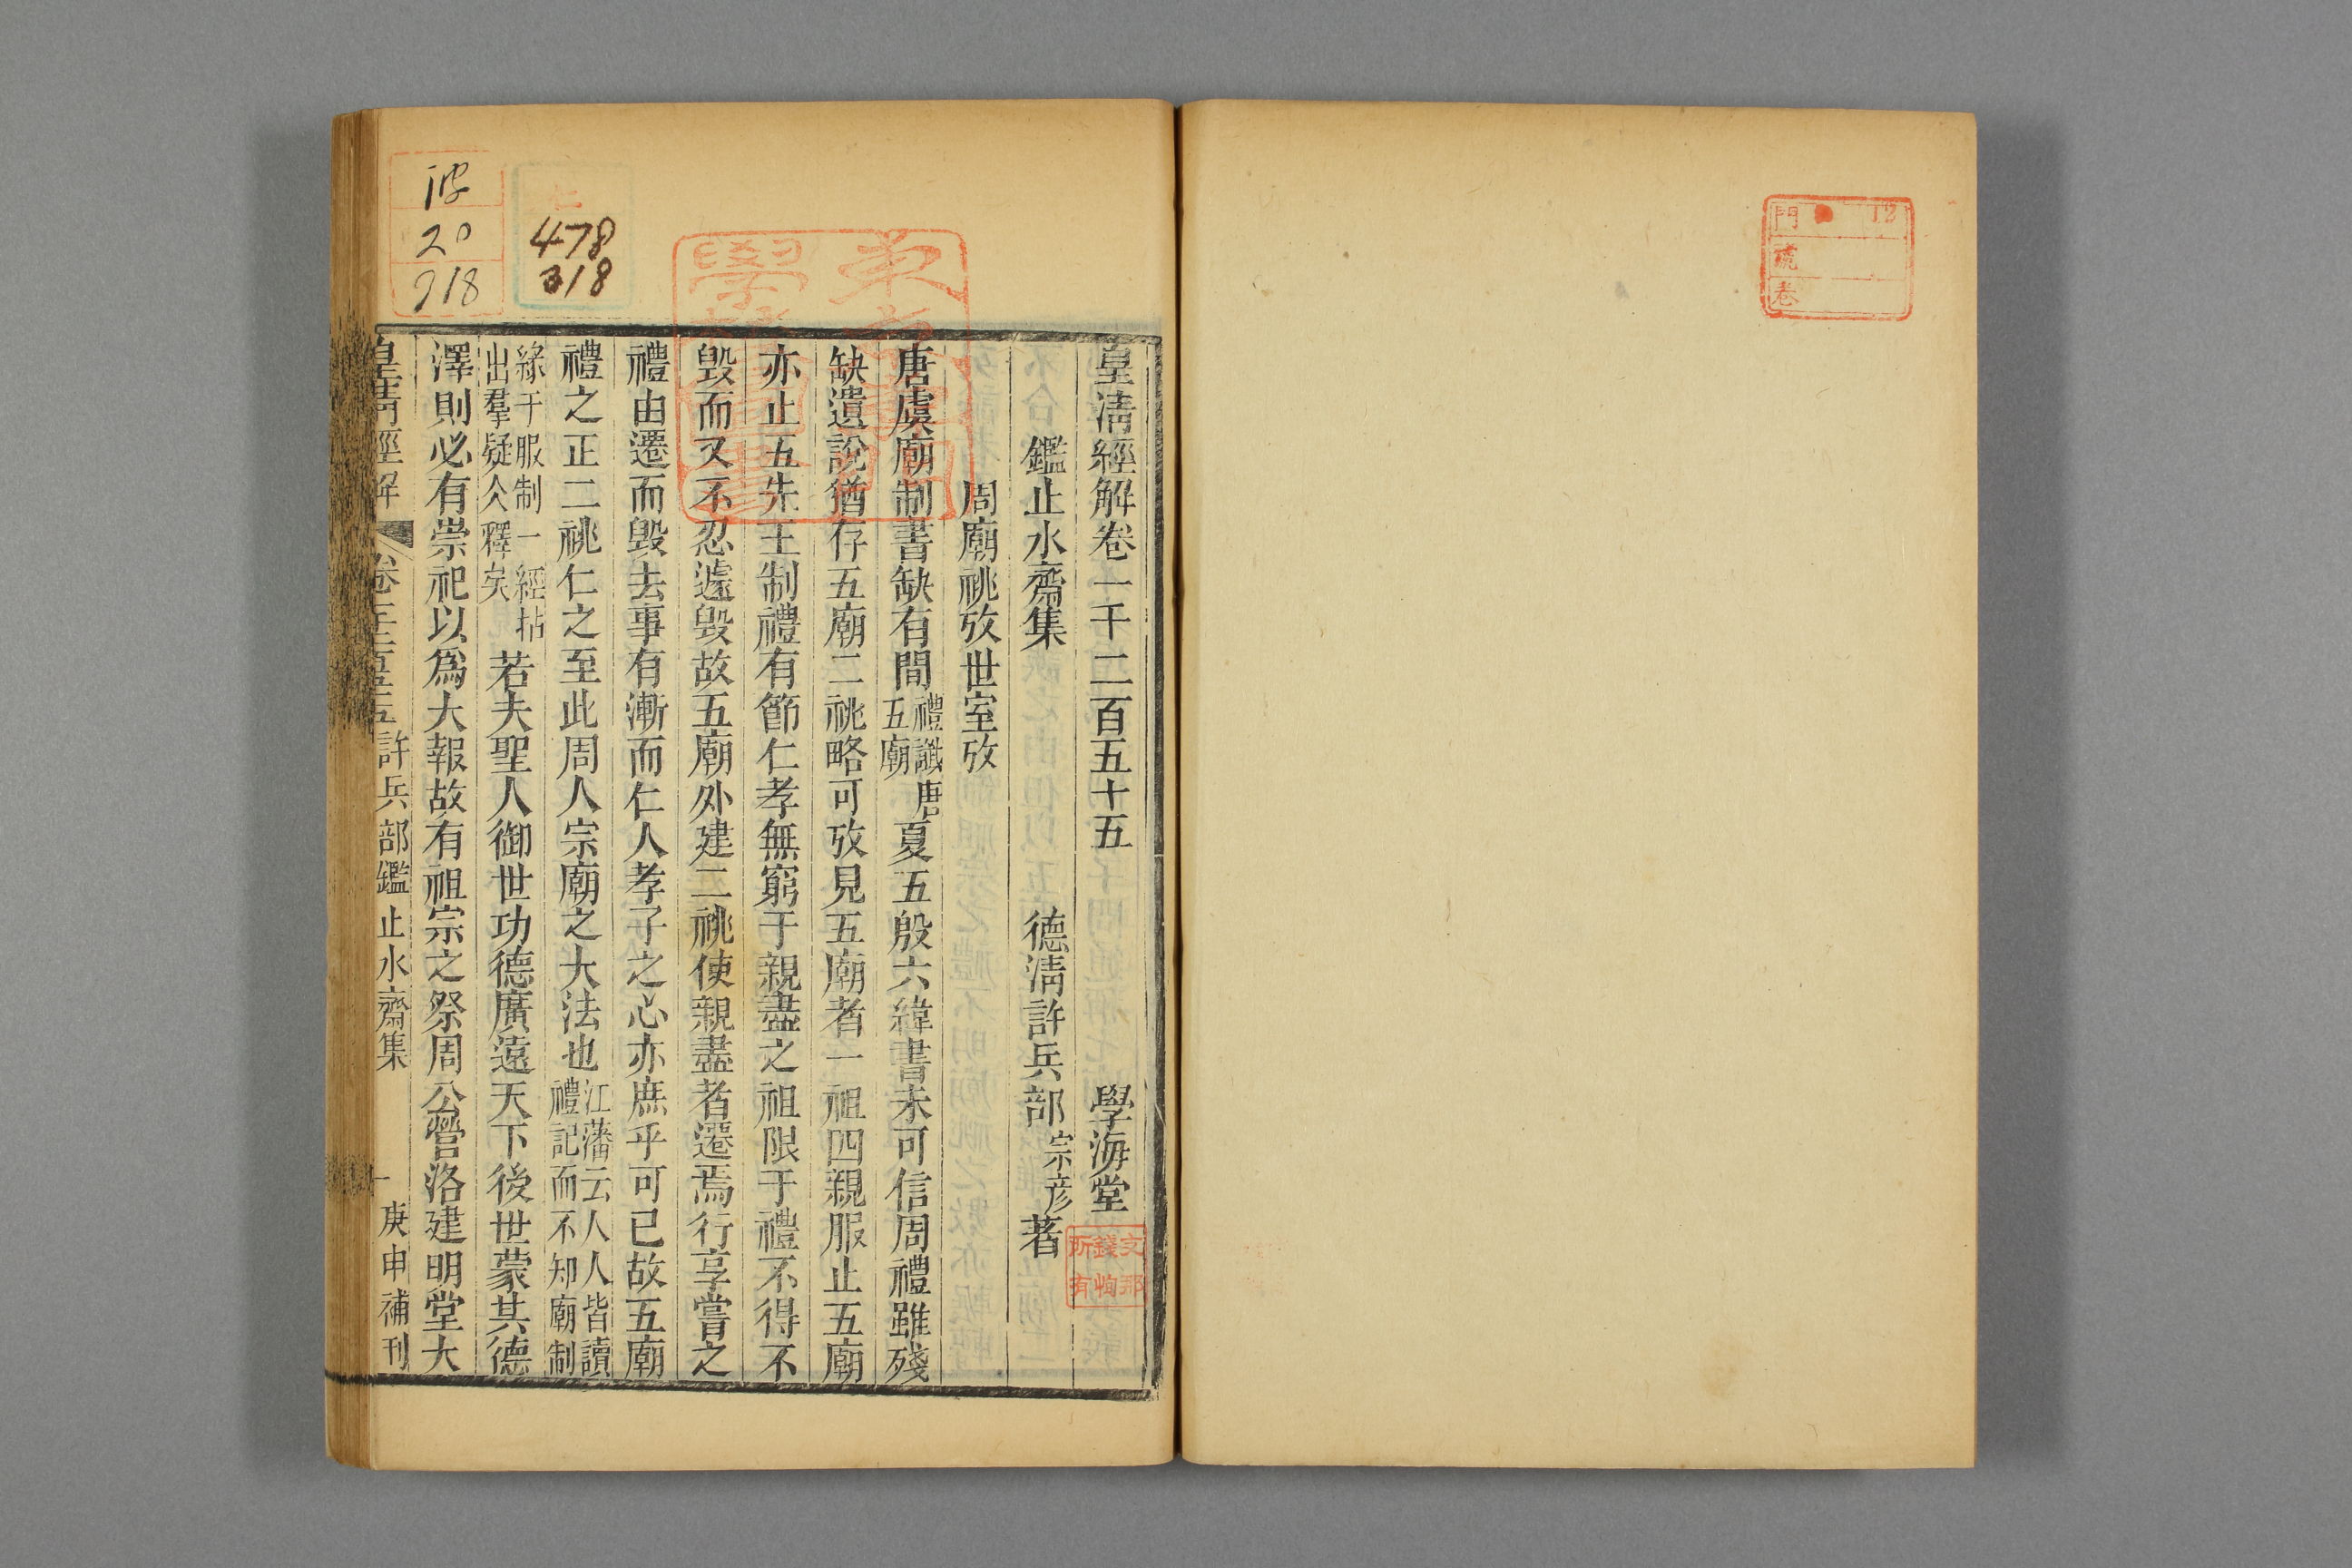 門 12
號
卷
皇清經解卷一千二百五十五 學海堂
鑑止水齋集 德清許兵部宗彥著
周廟祧攷世室攷
唐虞廟制書缺有間禮讖唐五廟夏五殷六緯書未可信周禮雖殘
缺遺說猶存五廟二祧略可攷見五廟者一祖四親服止五廟
亦止五先王制禮有節仁孝無窮于親盡之祖限于禮不得不
毀而又不忍遽毀故五廟外建二祧使親盡者遷焉行享嘗之
禮由遷而毀去事有漸而仁人孝子之心亦庶乎可已故五廟
禮之正二祧仁之至此周人宗廟之大法也江藩云人人皆讀禮記而不知廟制
緣于服制一經拈出羣疑仌釋矣若夫聖人御世功德廣遠天下後世蒙其德
澤則必有崇祀以爲大報故有祖宗之祭周公營洛建明堂大
皇清經解 卷 許兵部鑑止水齋集 一 庚申補刊
文那錢恂所有
478
318
20
918